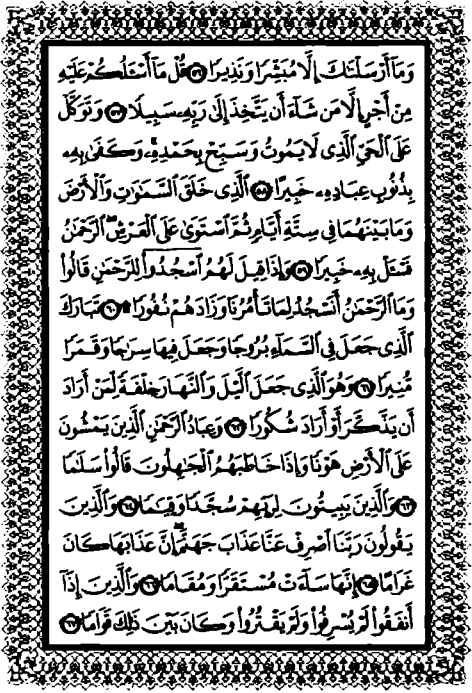 وَمَآ أَرْسَلْنَٰكَ إِلَّا مُبَشِّرًا وَنَذِيرًا ﴿٥٦﴾ قُلْ مَآ أَسْـَٔلُكُمْ عَلَيْهِ
مِنْ أَجْرٍ إِلَّا مَن شَآءَ أَن يَتَّخِذَ إِلَىٰ رَبِّهِۦ سَبِيلًا ﴿٥٧﴾ وَتَوَكَّلْ
عَلَى ٱلْحَىِّ ٱلَّذِى لَا يَمُوتُ وَسَبِّحْ بِحَمْدِهِۦ ۚ وَكَفَىٰ بِهِۦ
بِذُنُوبِ عِبَادِهِۦ خَبِيرًا ﴿٥٨﴾ ٱلَّذِى خَلَقَ ٱلسَّمَٰوَٰتِ وَٱلْأَرْضَ
وَمَا بَيْنَهُمَا فِى سِتَّةِ أَيَّامٍ ثُمَّ ٱسْتَوَىٰ عَلَى ٱلْعَرْشِ ۚ ٱلرَّحْمَٰنُ
فَسْـَٔلْ بِهِۦ خَبِيرًا ﴿٥٩﴾ وَإِذَا قِيلَ لَهُمُ ٱسْجُدُوا۟ لِلرَّحْمَٰنِ قَالُوا۟
وَمَا ٱلرَّحْمَٰنُ أَنَسْجُدُ لِمَا تَأْمُرُنَا وَزَادَهُمْ نُفُورًا ۩ ﴿٦٠﴾ تَبَارَكَ
ٱلَّذِى جَعَلَ فِى ٱلسَّمَآءِ بُرُوجًا وَجَعَلَ فِيهَا سِرَٰجًا وَقَمَرًا
مُّنِيرًا ﴿٦١﴾ وَهُوَ ٱلَّذِى جَعَلَ ٱلَّيْلَ وَٱلنَّهَارَ خِلْفَةً لِّمَنْ أَرَادَ
أَن يَذَّكَّرَ أَوْ أَرَادَ شُكُورًا ﴿٦٢﴾ وَعِبَادُ ٱلرَّحْمَٰنِ ٱلَّذِينَ يَمْشُونَ
عَلَى ٱلْأَرْضِ هَوْنًا وَإِذَا خَاطَبَهُمُ ٱلْجَٰهِلُونَ قَالُوا۟ سَلَٰمًا
﴿٦٣﴾ وَٱلَّذِينَ يَبِيتُونَ لِرَبِّهِمْ سُجَّدًا وَقِيَٰمًا ﴿٦٤﴾ وَٱلَّذِينَ
يَقُولُونَ رَبَّنَا ٱصْرِفْ عَنَّا عَذَابَ جَهَنَّمَ ۖ إِنَّ عَذَابَهَا كَانَ
غَرَامًا ﴿٦٥﴾ إِنَّهَا سَآءَتْ مُسْتَقَرًّا وَمُقَامًا ﴿٦٦﴾ وَٱلَّذِينَ إِذَآ
أَنفَقُوا۟ لَمْ يُسْرِفُوا۟ وَلَمْ يَقْتُرُوا۟ وَكَانَ بَيْنَ ذَٰلِكَ قَوَامًا ﴿٦٧﴾